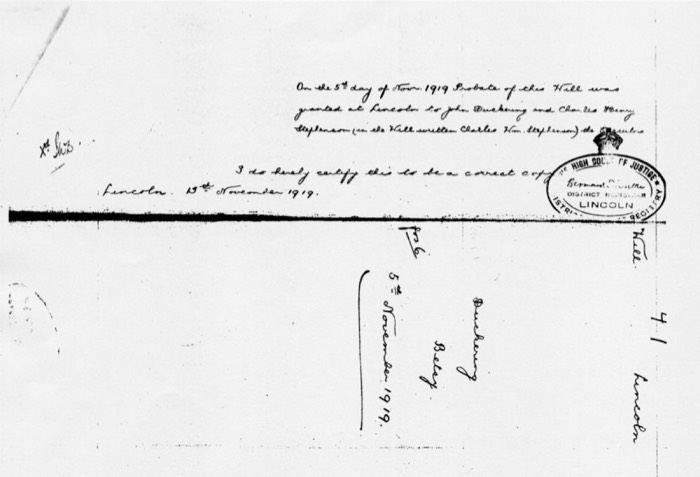 On the 5th day of Novr. 1919 Probate of this Will was
granted at Lincoln to John Duckering and Charles Henry
Stephenson (in the Will written Charles Wm. Stephenson) the Executors
I do hereby certify this to be a correct copy
Lincoln. 13th November 1919.
HIGH COURT OF JUSTICE
DISTRICT REGISTRAR
LINCOLN
DISTRICT REGISTRY
Will.
41
Lincoln
Duckering
Betsy.
5th November 1919.